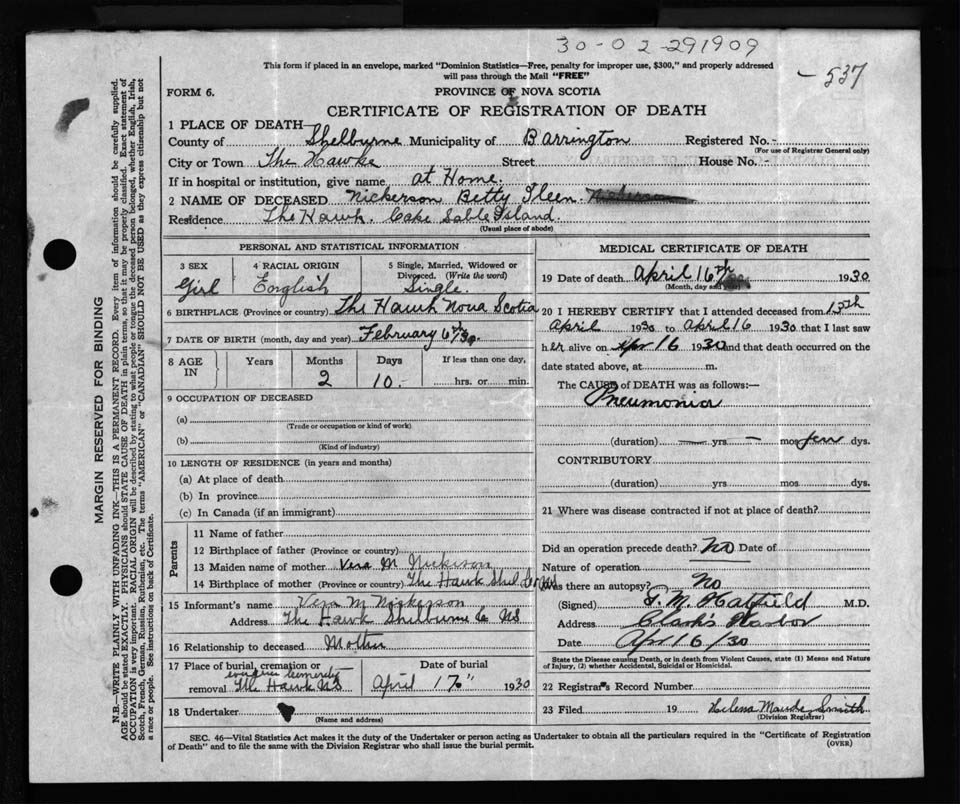 30-02-291909
- 537
This form if placed in an envelope, marked "Dominion Statistics—Free, penalty for improper use, $300," and properly addressed
will pass through the Mail "FREE"
FORM 6.
PROVINCE OF NOVA SCOTIA
CERTIFICATE OF REGISTRATION OF DEATH
1 PLACE OF DEATH—
County of Shelburne Municipality of Barrington Registered No. -
(For use of Registrar General only)
City or Town The Hawke Street House No. -
If in hospital or institution, give name at Home.
2 NAME OF DECEASED Nickerson Betty Ileen. Nickerson
Residence The Hawk. Cake Sable Island.
(Usual place of abode)
PERSONAL AND STATISTICAL INFORMATION
3 SEX
Girl
4 RACIAL ORIGIN
English
5 Single, Married, Widowed or
Divorced. (Write the word)
Single.
6 BIRTHPLACE (Province or country) The Hawk Nova Scotia
7 DATE OF BIRTH (month, day and year) February 6th/30.
8 AGE
IN
Years
Months
2
Days
10.
If less than one day,
hrs. or min.
9 OCCUPATION OF DECEASED
(a)
(Trade or occupation or kind of work)
(b)
(Kind of industry)
10 LENGTH OF RESIDENCE (in years and months)
(a) At place of death
(b) In province
(c) In Canada (if an immigrant)
Parents
11 Name of father
12 Birthplace of father (Province or country)
13 Maiden name of mother Vera M Nickerson
14 Birthplace of mother (Province or country) The Hawk Shel Co NS
15 Informant's name Vera M Nickerson
Address The Hawk Shelburne Co NS
16 Relationship to deceased Mother
17 Place of burial, cremation or
removal The Hawk NS
Date of burial
April 17" 1930
18 Undertaker
(Name and address)
MEDICAL CERTIFICATE OF DEATH
19 Date of death April 16th 1930
(Month, day and
20 I HEREBY CERTIFY that I attended deceased from 15th
April 1930 to April 16 1930 that I last saw
her alive on Apr 16 1930 and that death occurred on the
date stated above, at m.
The CAUSE of DEATH was as follows:—
Pneumonia
(duration) — yrs — mos few dys.
CONTRIBUTORY
(duration) yrs mos dys.
21 Where was disease contracted if not at place of death?
Did an operation precede death? No Date of
Nature of operation
Was there an autopsy? No
(Signed) T. M. Hatfield M.D.
Address Clark's Harbor
Date Apr 16/30
State the Disease causing Death, or in death from Violent Causes, state (1) Means and Nature
of Injury, (2) whether Accidental, Suicidal or Homicidal.
22 Registrar's Record Number
23 Filed 19 Helena Smith
(Division Registrar)
SEC. 46—Vital Statistics Act makes it the duty of the Undertaker or person acting as Undertaker to obtain all the particulars required in the "Certificate of Registration
of Death" and to file the same with the Division Registrar who shall issue the burial permit.
(OVER)
MARGIN RESERVED FOR BINDING
N.B.—WRITE PLAINLY WITH UNFADING INK—THIS IS A PERMANENT RECORD. Every item of information should be carefully supplied.
AGE should be stated EXACTLY. PHYSICIANS should STATE CAUSE OF DEATH in plain terms, so that it may be properly classified. Exact statement of
OCCUPATION is very important. RACIAL ORIGIN will be described by stating to what people or tongue the deceased person belonged, whether English, Irish,
Scotch, French, German, Russian, Ruthenian, etc. The terms "AMERICAN" or "CANADIAN" SHOULD NOT BE USED as they express citizenship but not
a race or people. See instructions on back of Certificate.